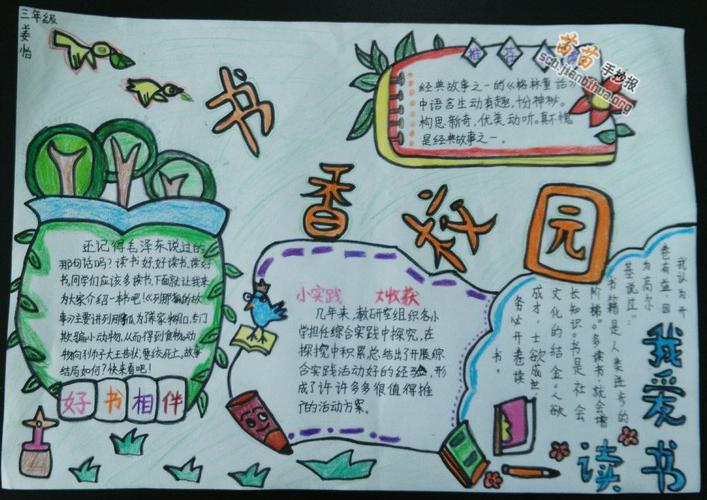 三年级
姜怡
书香校园
苗苗手抄报
scb.jianbihua.org
经典故事之一的《格林童话》
中语言生动有趣，十分神秘。
构思新奇，优美动听。真不愧
是经典故事之一。
还记得毛泽东说过的
那句话吗？读书好，好读书，读好
书。同学们应该多读书，下面就让我来
为大家介绍一本吧！
欺骗小动物，从而得到食物，动
物向列
结局如何？快来看吧！
好书相伴
小实践 大收获
几年来，教研室组织各小
学担任综合实践中探究，在
探搜中积累总结出了开展综
合实践活动好的经验，形
成了许许多多很值得推
广的活动方案。
我认为开
卷有益，因
为高尔
基说过：
书籍是人类进步的
阶梯。多读书，就会增
长知识。书是社会
文化的结金。人欲
成才，士欲成
务必开卷读
书。
我爱读书